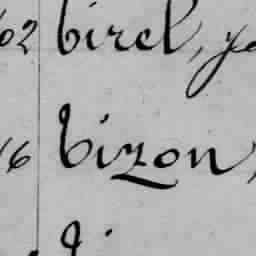 62 birel, ya
16 bizon,